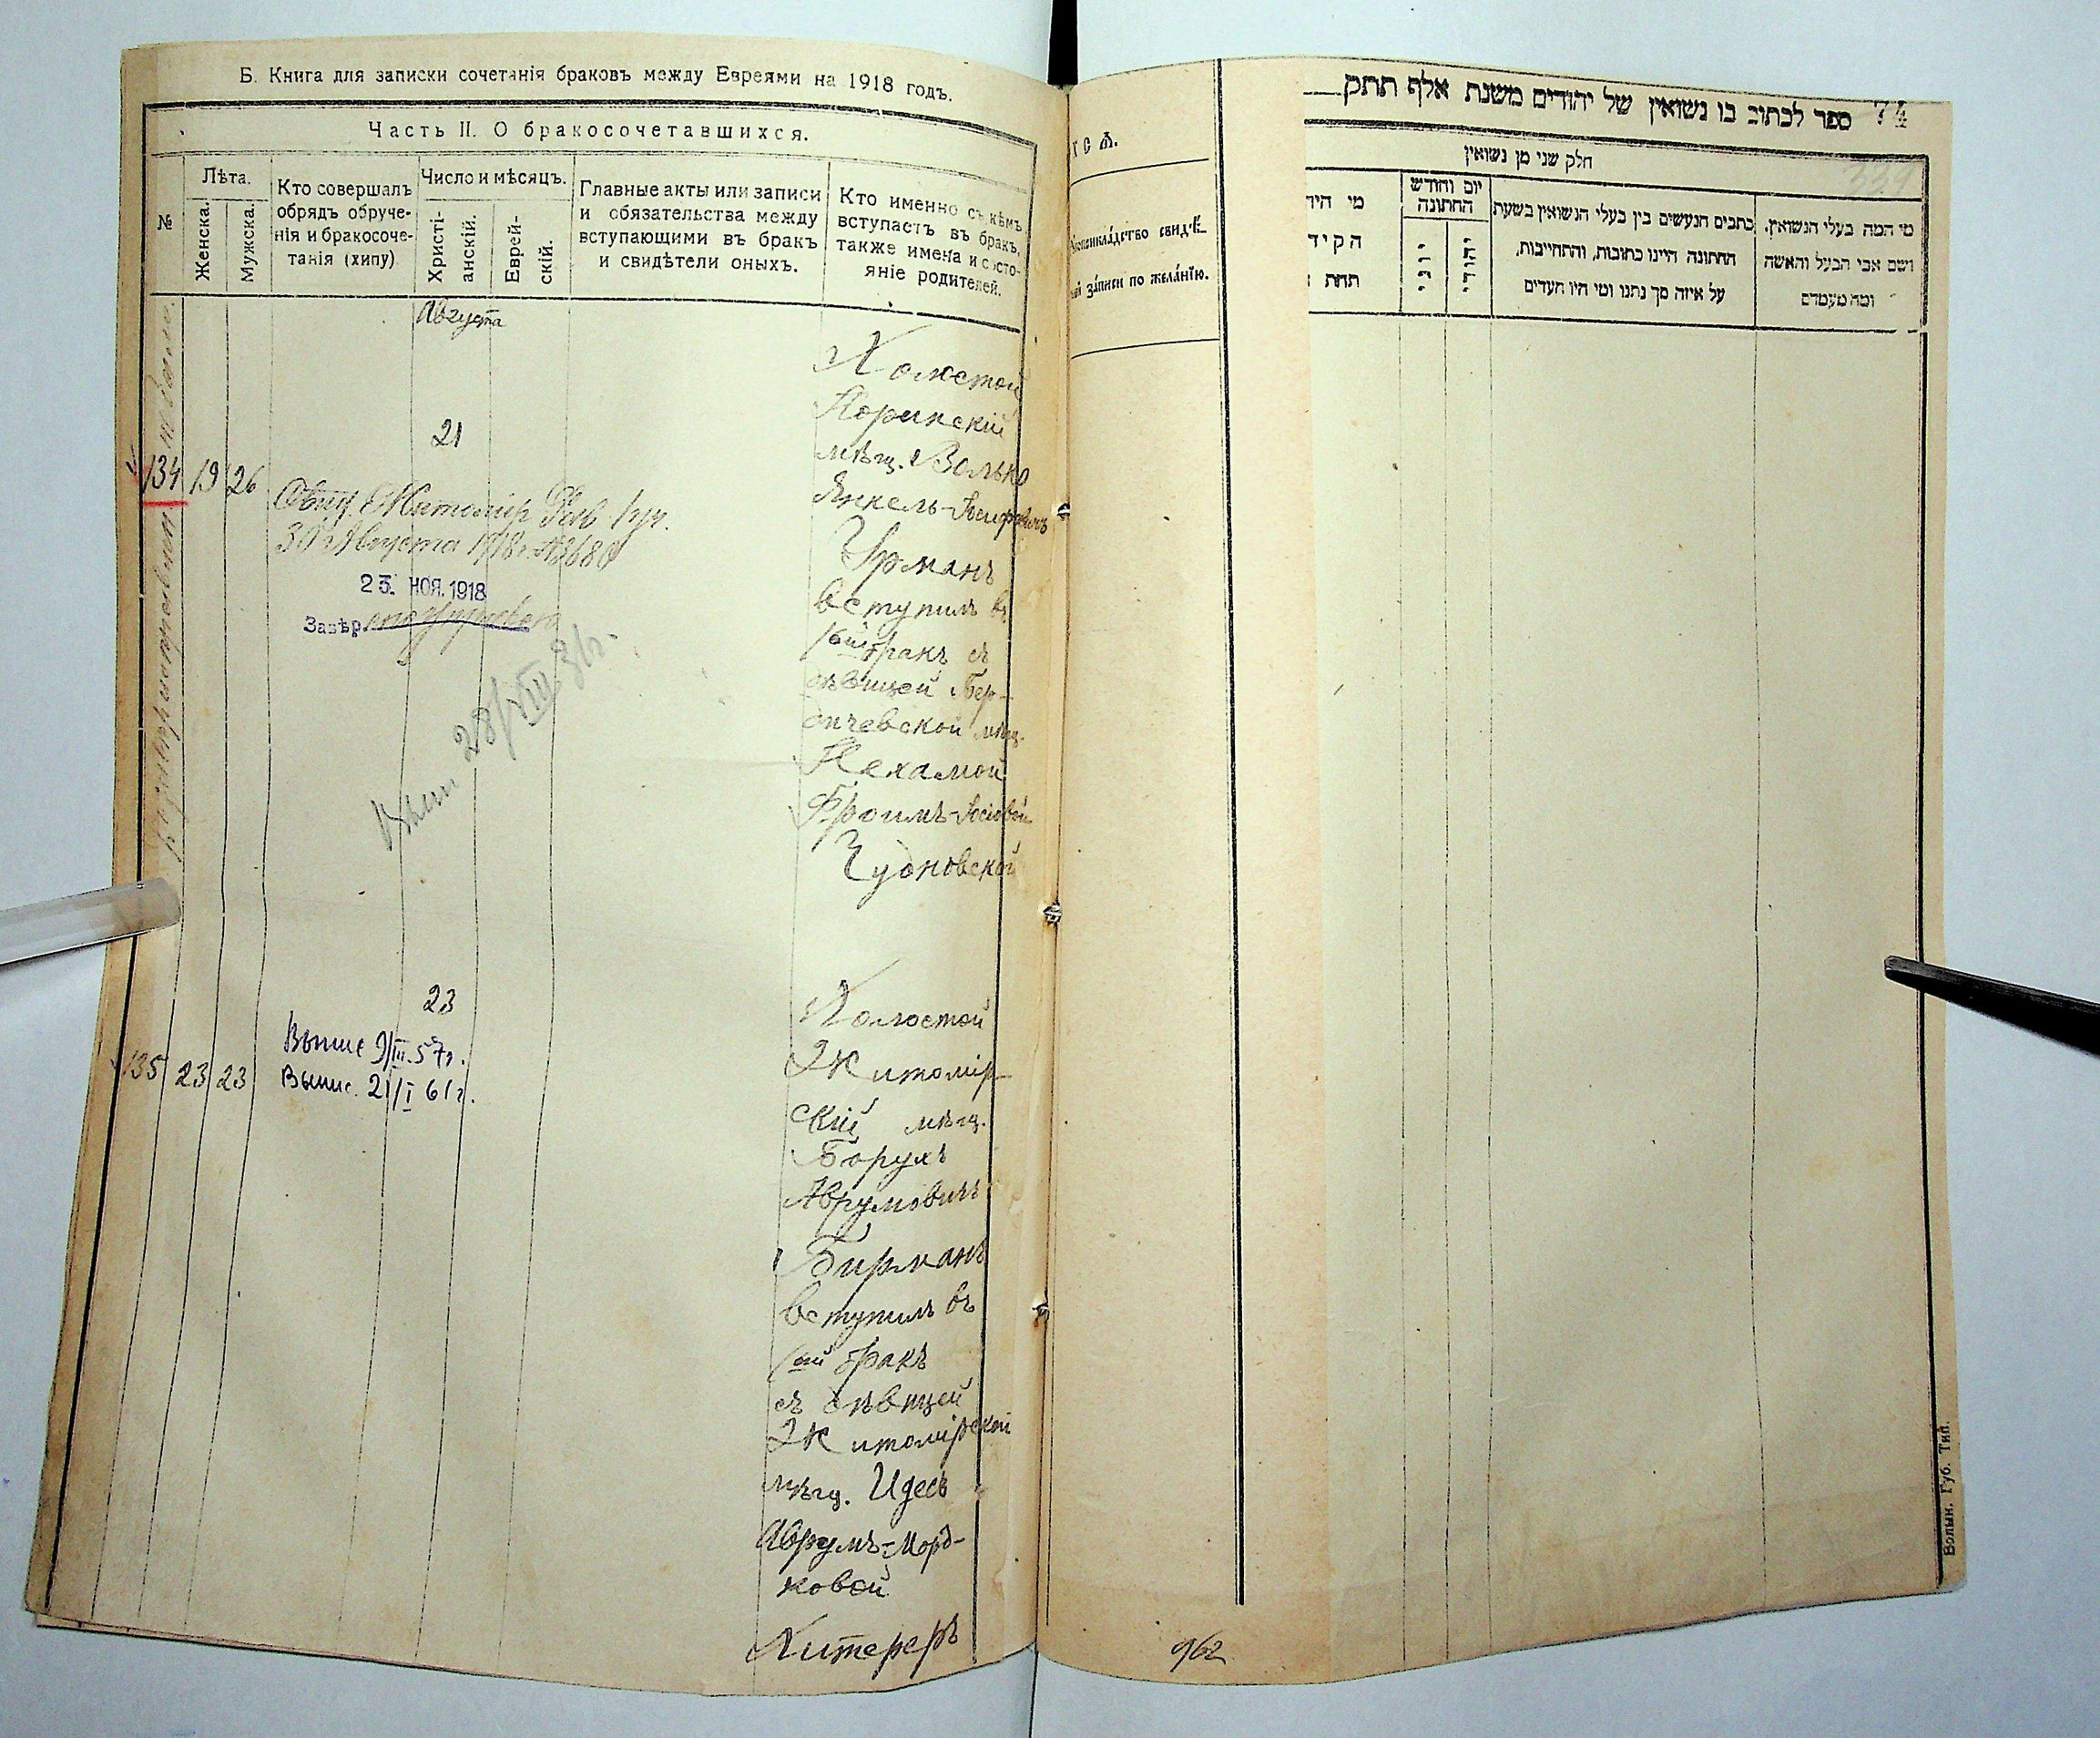 Б. Книга для записки сочетанія браковъ между Евреями на 1918 годъ.
Часть II. О бракосочетавшихся.
№
Лѣта.
Женска.
Мужска.
Кто совершалъ
обрядъ обруче-
нія и бракосоче-
танія (хипу)
Число и мѣсяцъ.
Христі-
анскій.
Еврей-
скій.
Главные акты или записи
и обязательства между
вступающими въ бракъ
и свидѣтели оныхъ.
Кто именно съ кѣмъ
вступаетъ въ бракъ,
также имена и состо-
яніе родителей.
Августа
21
134 19 26
30 Августа 1918 г.
23. НОЯ. 1918
Завѣр.
Выпи 28/VIII 31г.
Холостой
Норинскій
мѣщ. Волько
Янкель-
Урманъ
вступилъ въ
1ый бракъ съ
дѣвицей Бер-
дичевской мѣщ.
Нехамой
Фроимъ-
Чудновской
23
Выпис 9/III. 57г.
135 23 23
Выпис. 21/I 61г.
Холостой
Житомір-
скій мѣщ.
Борухъ
Аврумовичъ
Бирманъ
вступилъ въ
1ый бракъ
съ дѣвицей
Житомірской
мѣщ. Идесъ
Аврумъ-Морд-
ковой
Хитереръ
свид
записи по желанію.
962
74
339
ספר לכתוב בו נשואין של יהודים משנת אלף תתק
חלק שני מן נשואין
מי המה בעלי הנשואין,
ושם אבי הבעל והאשה
ומה מעמדם
כתבים הנעשים בין בעלי הנשואין בשעת
החתונה היינו כתובות, והתחייבות,
על איזה סך נתנו ומי היו העדים
יום וחודש
החתונה
יהודי
יוני
מי היו
הקיד
תחת
Волын. Губ. Тип.